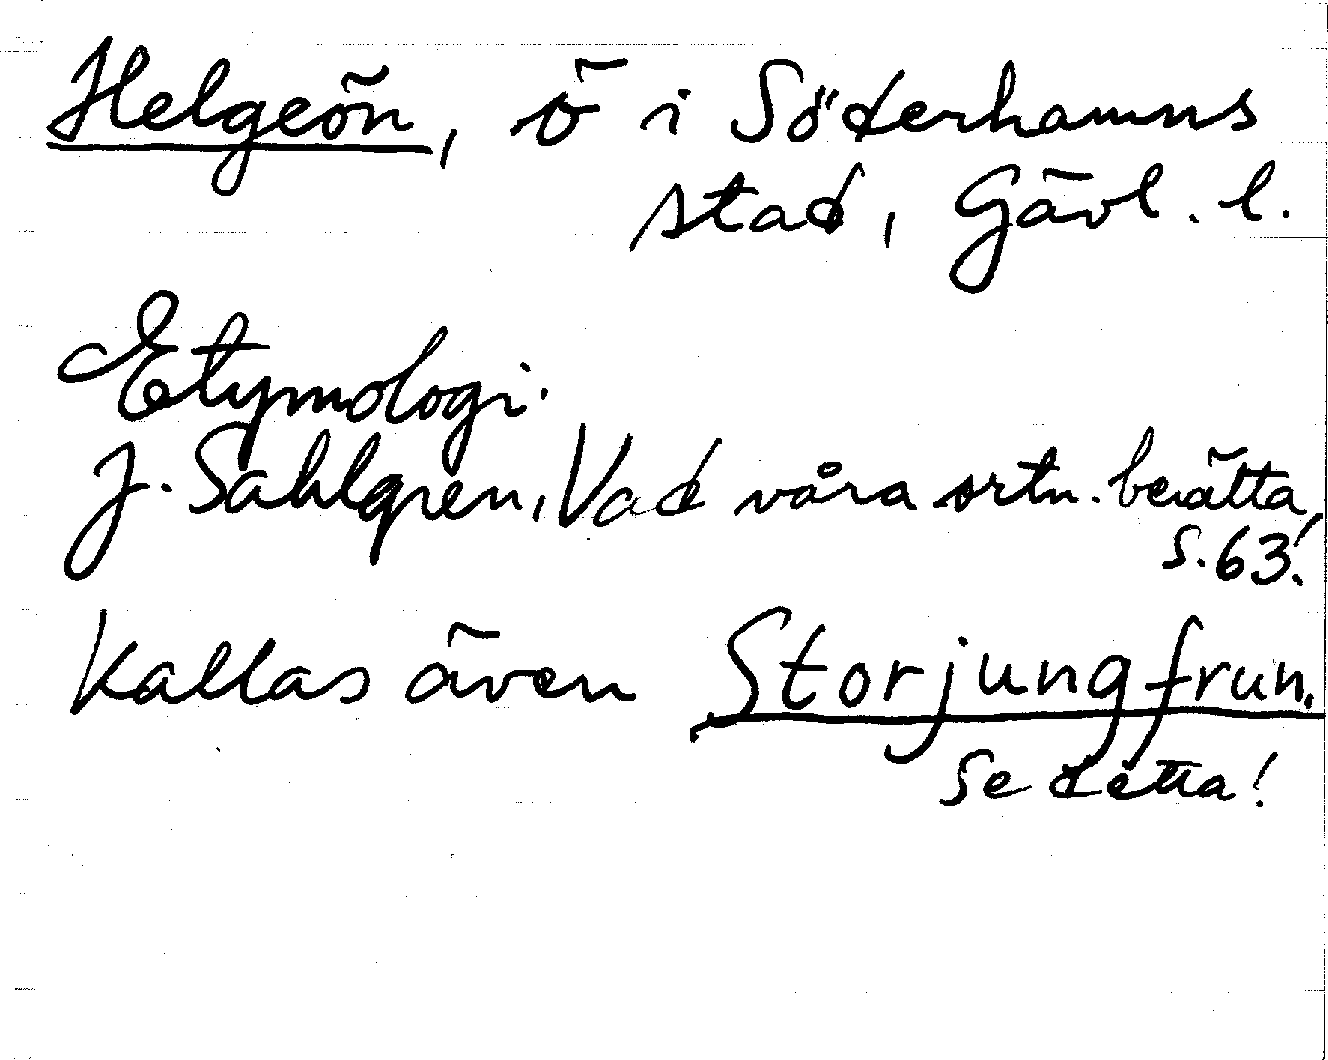 Helgeön, ö i Söderhamns
stad, Gävl. l.
Etymologi.
J. Sahlgren, Vad våra ortn. berätta,
s. 63!
Kallas även Storjungfrun.
Se detta!